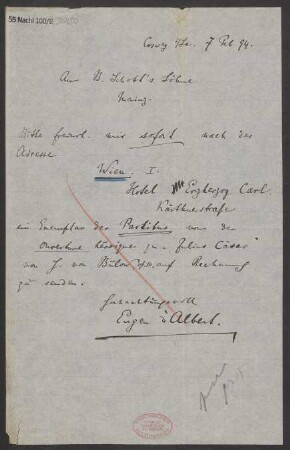 55 Nachl 100/B
Coswig i/Sa. 7 Feb 94.
An B. Schott's Söhne
Mainz.
Bitte freundl. mir sofort nach der
Adresse
Wien I.
Hotel Erzherzog Carl
Kärthnerstrasse
ein Exemplar der Partitur von der
Ouverture héroique zu "Julius Cäsar"
von H. von Bülow auf Rechnung
zu senden.
Hochachtungsvoll
Eugen d'Albert.